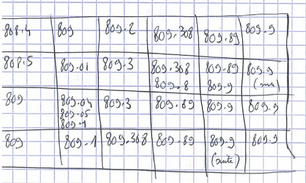 808.4 809 809.2 809.308 809.89 809.9
808.5 809.01 809.3 809.308 809.89 809.9
809.8 809.9
809 809.04 809.3 809.89 809.9 809.9
809.05
809.1
809 809.1 809.308 809.89 809.9 809.9
(suite)